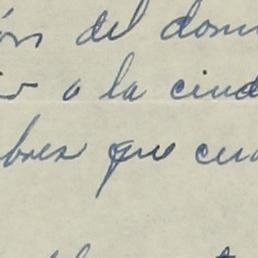 ón del dom
o a la ciud
bres que cu